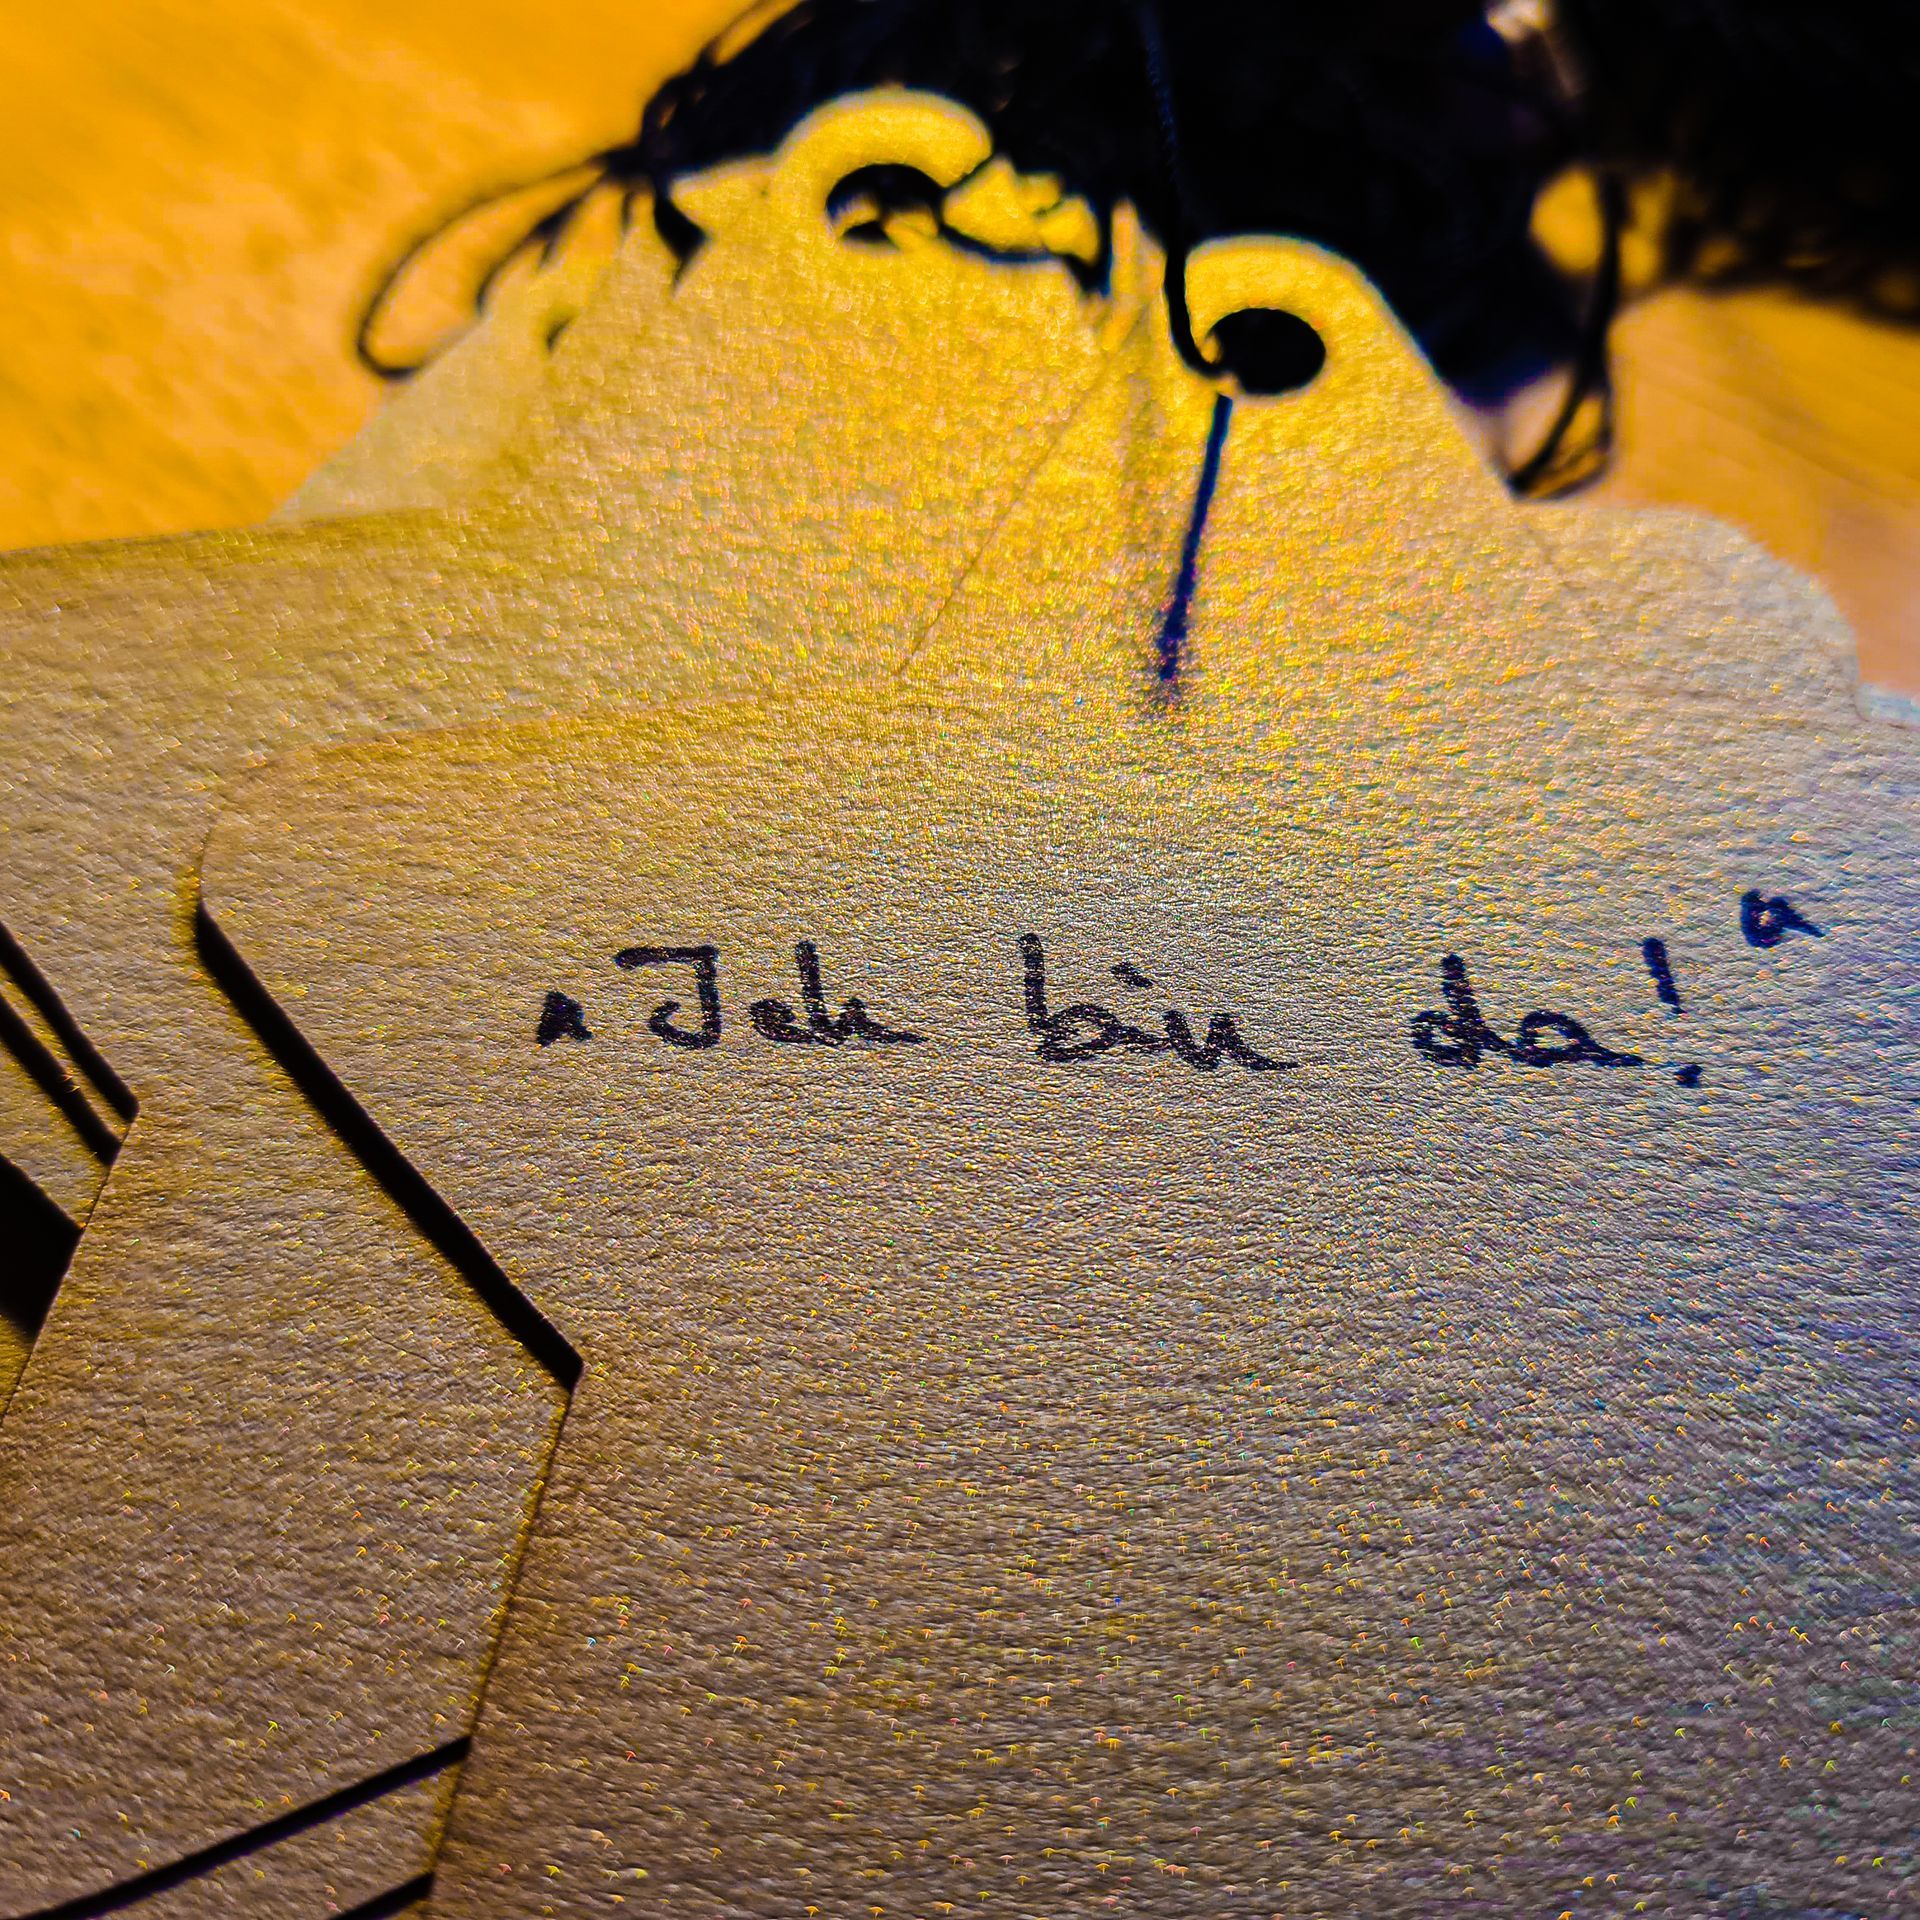 „Ich bin da!“